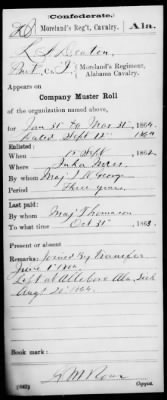 (Confederate.)
Moreland's Reg't, Cavalry. Ala.
Deaton
Pvt, Co. Moreland's Regiment,
Alabama Cavalry.
Appears on
Company Muster Roll
of the organization named above,
for Jan 31 to Mar 31, 1864
dated Sept 12 1864
Enlisted:
When Sept 1862
Where Iuka Miss
By whom Maj George
Period Three years
Last paid:
By whom Maj Thomason
To what time Oct 31 1863.
Present or absent
Remarks: Joined by transfer
June 1st
Left at Alleboro Ala, Sick
Aug 1864
Book mark:
(642) Copyist.